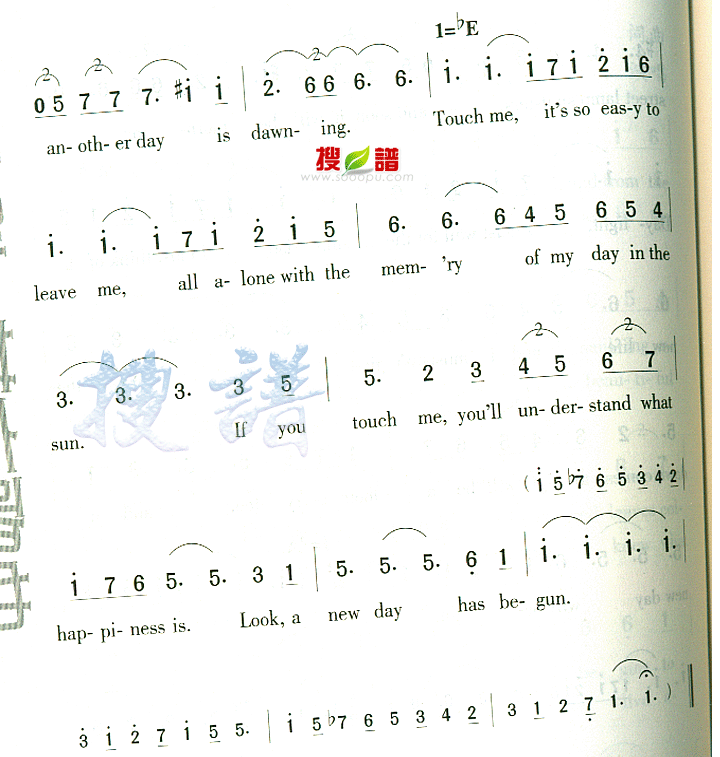 1=♭E
0 5 7 7 7. #i i | 2. 6 6 6. 6. | i. i. i 7 i 2 i 6
an- oth- er day is dawn- ing. Touch me, it's so eas-y to
搜譜
www.sooopu.com
i. i. i 7 i 2 i 5 | 6. 6. 6 4 5 6 5 4
leave me, all a- lone with the mem- 'ry of my day in the
3. 3. 3. 3 5 | 5. 2 3 4 5 6 7
sun. If you touch me, you'll un- der- stand what
搜譜
( i 5 ♭7 6 5 3 4 2
i 7 6 5. 5. 3 1 | 5. 5. 5. 6 1 | i. i. i. i.
hap- pi- ness is. Look, a new day has be- gun.
3 i 2 7 i 5 5. | i 5 ♭7 6 5 3 4 2 | 3 1 2 7 1. 1. )